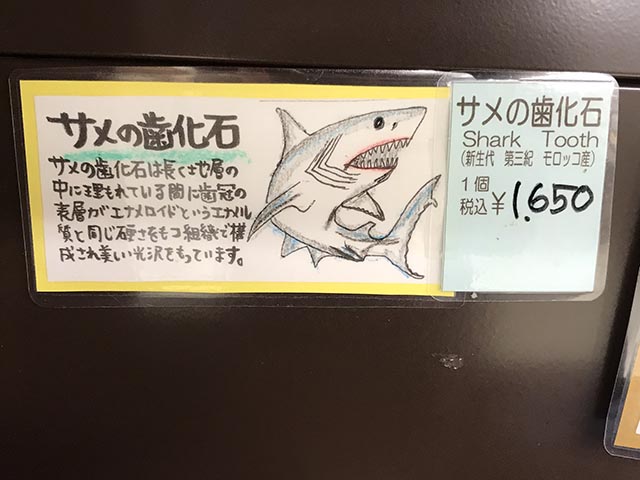 サメの歯化石
サメの歯化石は長く地層の
中に埋もれている間に歯冠の
表層がエナメロイドというエナメル
質と同じ硬さをもつ組織で構
成され美しい光沢をもっています。
サメの歯化石
Shark Tooth
(新生代 第三紀 モロッコ産)
1個
税込¥1,650